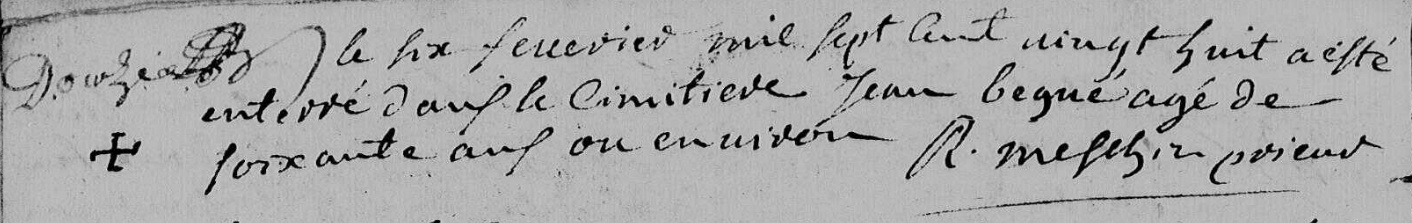 le six feuerier mil sept cent uingt huit a esté
enterré dans le Cimitiere Jean begué agé de
+ soixante ans ou enuiron R. meschin prieur